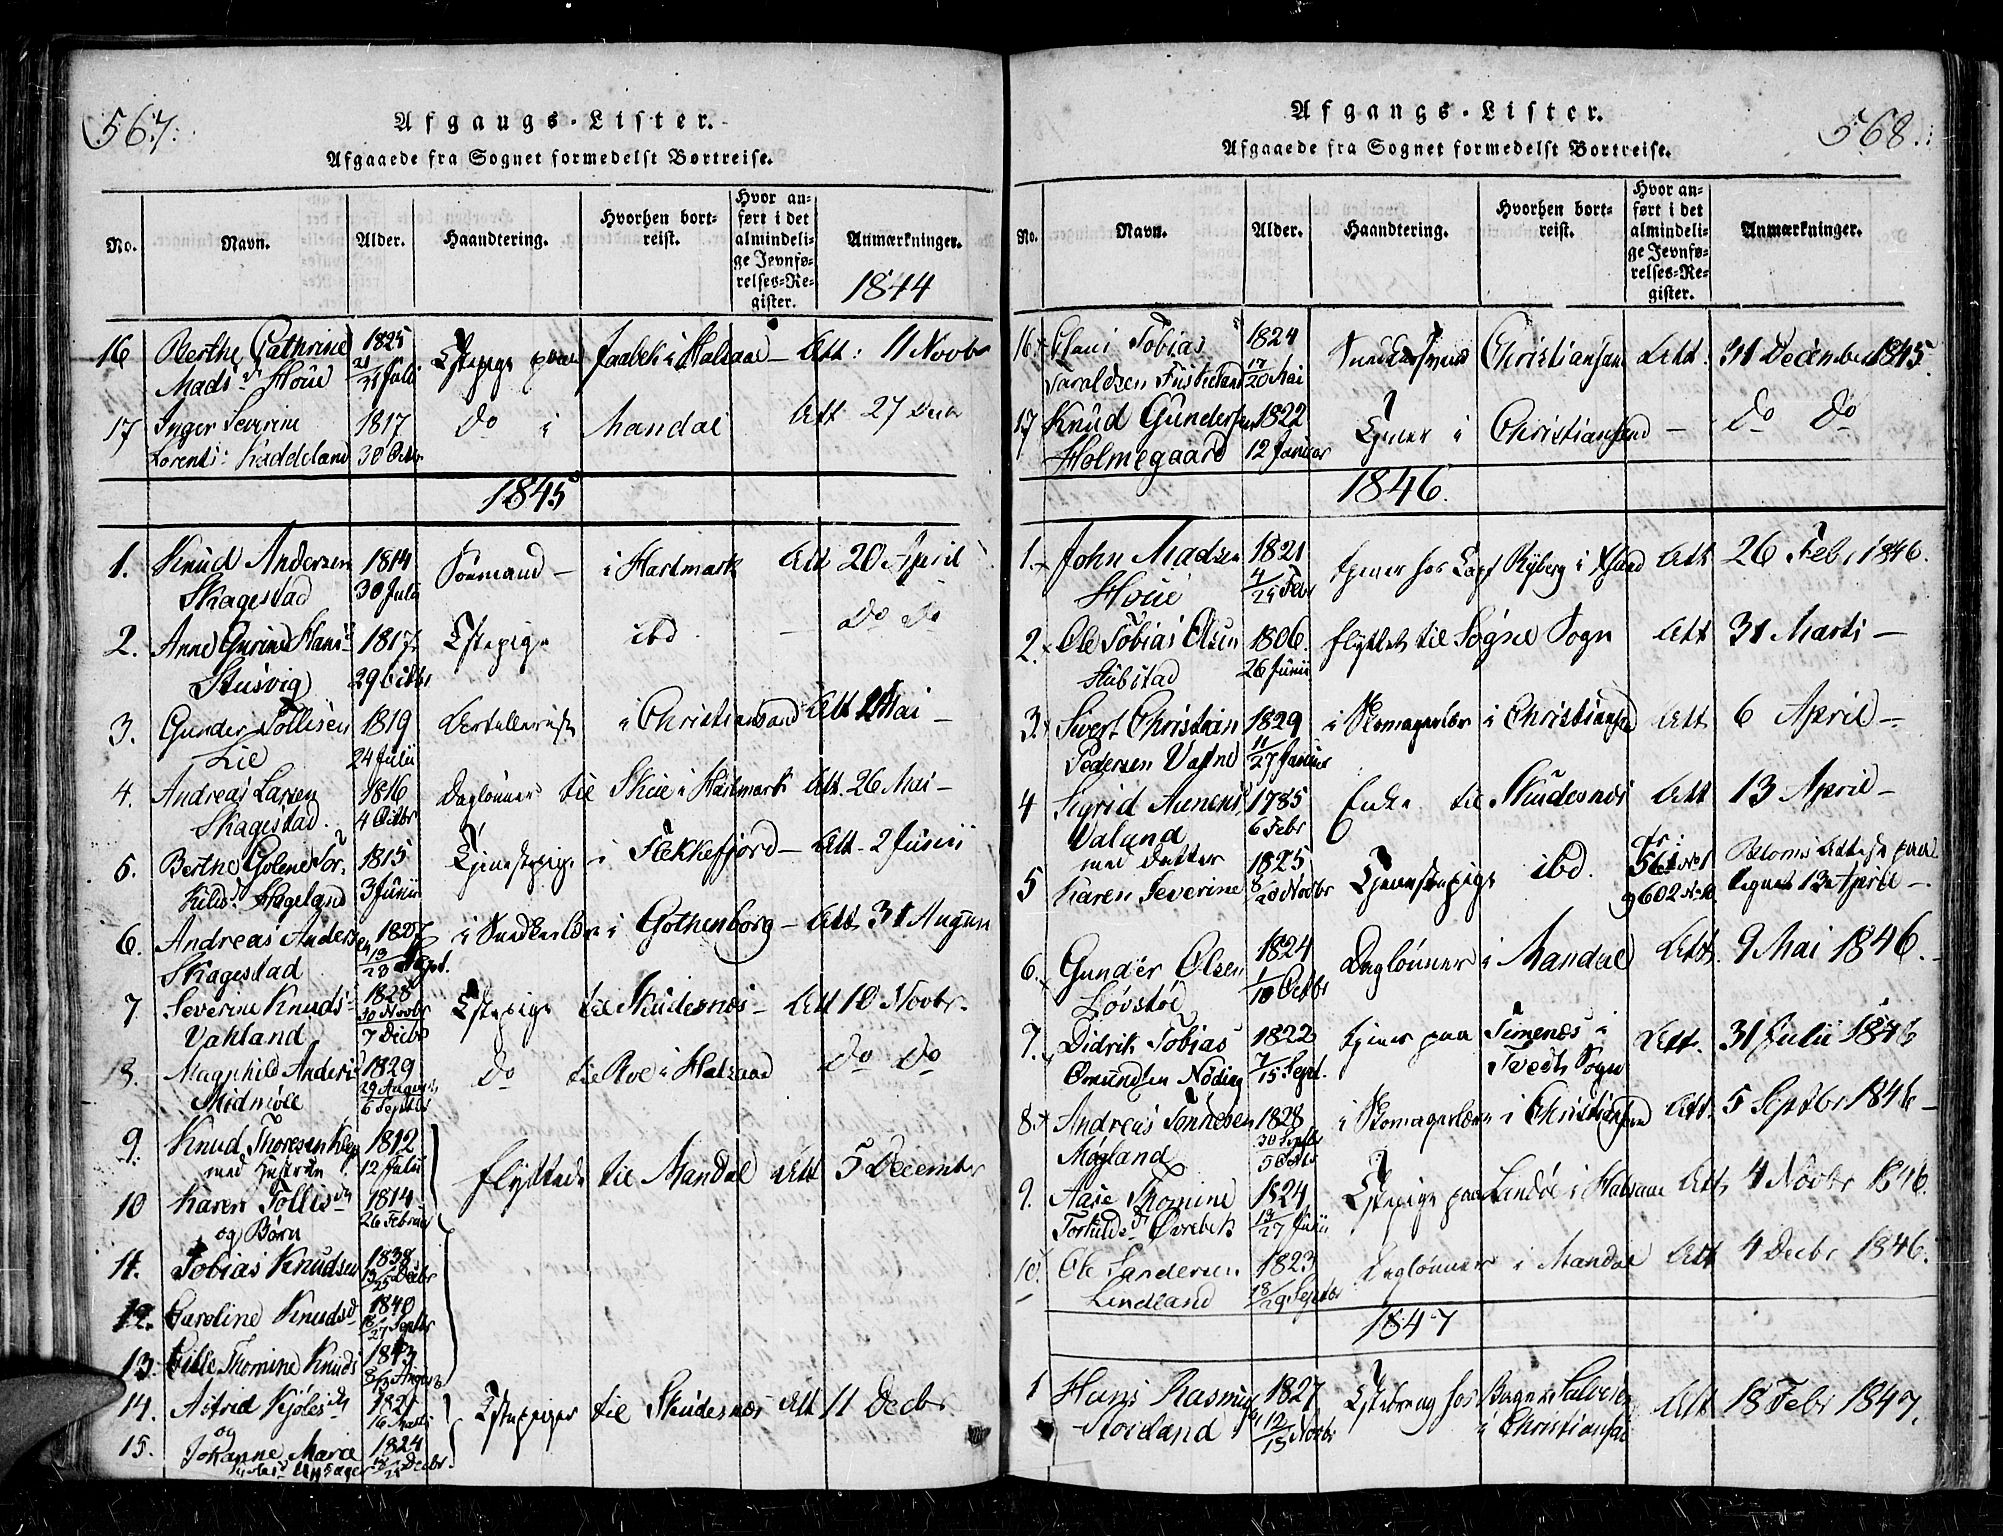 567.
Afgangs-Lister.
Afgaaede fra Sognet formedelst Bortreise.
No. Navn. Alder. Haandtering. Hvorhen bortreist. Hvor anført i det almindelige Jevnførelses-Register. Anmærkninger.
1844
16 Berthe Cathrine 1825 Tstepige paa Jaabek i Halsaae - Att: 11 Novbr
Mads d. Houe 21/31 Juli
17 Inger Severine 1817 Do i Mandal Att. 27 Decbr
Lorents: Kaddeland 30 Octbr
1845
1. Knud Andersen 1814 Sömand - i Hartmark Att 20 April
Skagestad 30 Juli
2. Anne Gurine Hans 1817 Tstepige ibd - Do Do
Stusvig 29 Octbr
3. Gunder Tollisen 1819 Artillerist i Christiansand Att Mai -
Lie 24 Julii
4. Andreas Larsen 1816 Daglönner til Skue i Hartmark Att. 26 Mai -
Skagestad. 4 Octbr
5. Berthe Golene Tor- 1815 Tjenestepige i Flekkefjord - Att. 2 Junii
kilds. Hageland 3 Junii
6. Andreas Anders 1827 i Snedkerlære i Gothenborg - Att. 31 August
Skagestad 13/23 Sept.
7 Severine Knuds- 1828 Tstepige til Skudesnæs - Att 10 Novbr.
Vatland 30 Novbr 7 Decbr
8. Magnhild Anders 1829 Do til Roe i Halsaae Do Do
Midmöll 29 August 6 Septbr
9. Knud Thoresen Klep 1812
med Hustru 12 Julii flyttede til Mandal Att 5 December
10 Karen Tollis d 1814
og Børn 26 Februar
11. Tobias Knudsen 1838
13/25 Decbr
12. Caroline Knudsd 1840
18/27 Septbr
13. Cille Thomine Knuds 1843
8/13 August
14. Astrid Kjöles d 1821 Tstepiger til Skudesnæs Att 11 Decbr
og 16 Marts
15. Johanne Marie 1824
Upsager Decbr
568.
Afgangs-Lister.
Afgaaede fra Sognet formedelst Bortreise.
No. Navn. Alder. Haandtering. Hvorhen bortreist. Hvor anført i det almindelige Jevnførelses-Register. Anmærkninger.
16 Claus Tobias 1824 Snedkersvend Christiansand Att. 31 December 1845.
Taraldsen 17/20 Mai
17 Knud Gundersen 1822 Tjener i Christiansand - Do Do
Holmegaard 12 Januar
1846.
1. John Madsen 1821 tjener hos Capt Ryberg i Xsand Att 26 Febr 1846.
Houe 4/25 Febr
2. Ole Tobias Olsen 1806. flyttet til Sögne Sogn Att 31 Marts -
Stubstad 26 Junii
3. Sivert Christian 1829 i Skomagerlære i Christiansand Att 6 April -
Pedersen Vatne 11/27 Januar
4 Sigrid Aanens 1785 Enke til Skudesnæs Att 13 April -
Valand 6 Febr
med Datter
5 Karen Severine 1825 Tjenestepige ibd. 561 No 1 Attest paa
8/20 Novbr 9602 13 April -
6. Gunder Olsen 1824 Daglönner i Mandal Att. 9 Mai 1846.
Lövstöl 1/10 Octbr
7. Didrik Tobias 1822 tjener paa Timenæs i Att. 31 Julii 1846
Omundsen Nöding 7/15 Sept. Tvedt Sogn
8. Andreas Tønnesen 1828 i Skomagerlære i Christiansand Att. 5 Septbr 1846 -
Møgland 30 Septbr 5 Octbr
9. Aase Thomine 1824 Tstepige paa Landöe i Halsaae Att. 4 Novbr 1846.
Torkilds d Övrebek 13/27 Junii
10. Ole Sandersen 1823 Daglönner i Mandal Att 4 Decbr 1846.
Lindland 18/29 Septbr
1847
1 Hans Rasmus 1827 Tstedreng hos Bager Salvesen Att 18 Febr 1847.
Stordland 12/15 Novbr i Christiansand